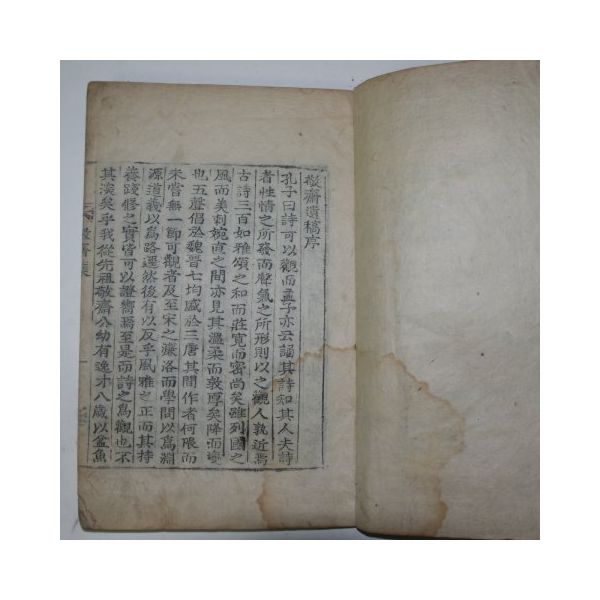 敬齋遺稿序
孔子曰詩可以觀而孟子亦云誦其詩知其人夫詩
者性情之所發而聲氣之所形則以之觀人孰近焉
古詩三百如雅頌之和而莊寬而密尚矣雖列國之
風而美刺婉直之間亦見其溫柔而敦厚矣降而變
也五聲倡於魏晉七均盛於三唐其間作者何限而
未嘗無一節可觀者及至宋之濂洛而學問以爲淵
源道義以爲路逕然後有以反乎風雅之正而其持
養踐修之實皆可以證嚮焉至是而詩之爲觀也不
其渙矣乎我從先祖敬齋公幼有逸才八歲以盆魚
敬齋集